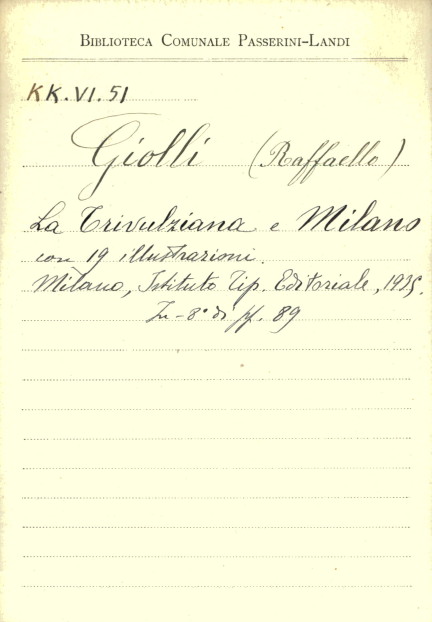 BIBLIOTECA COMUNALE PASSERINI-LANDI
KK.VI.51
Giolli (Raffaello)
La Trivulziana e Milano
con 19 illustrazioni.
Milano, Istituto Tip. Editoriale, 1935.
In-8° di pp. 89